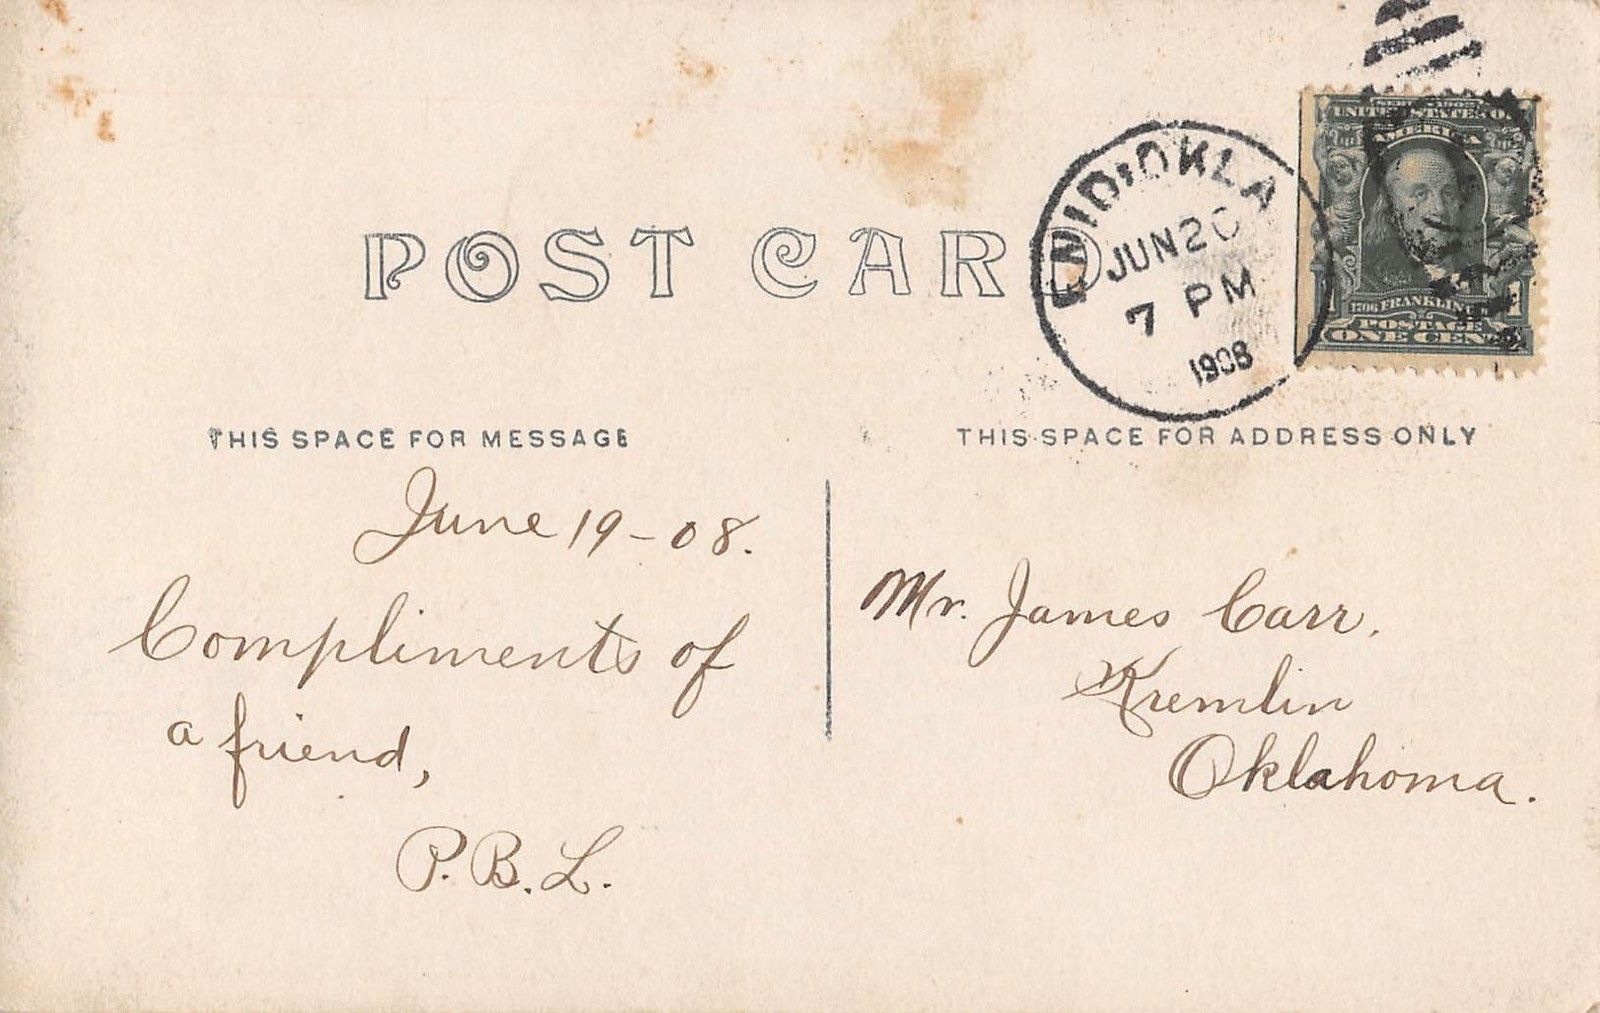 POST CARD
ENID, OKLA
JUN 20
7 PM
1908
SERIES 1902
UNITED STATES OF
AMERICA
1706 FRANKLIN
POSTAGE
1 ONE CENT 1
THIS SPACE FOR MESSAGE
June 19-08.
Compliments of
a friend,
P.B.L.
THIS SPACE FOR ADDRESS ONLY
Mr. James Carr,
Kremlin
Oklahoma.